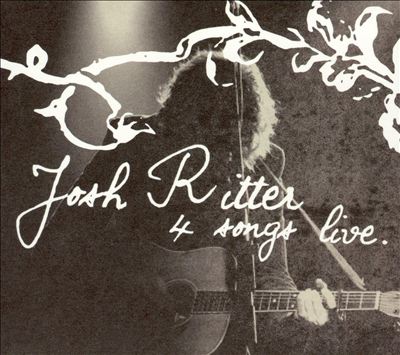 Josh Ritter
4 songs live.